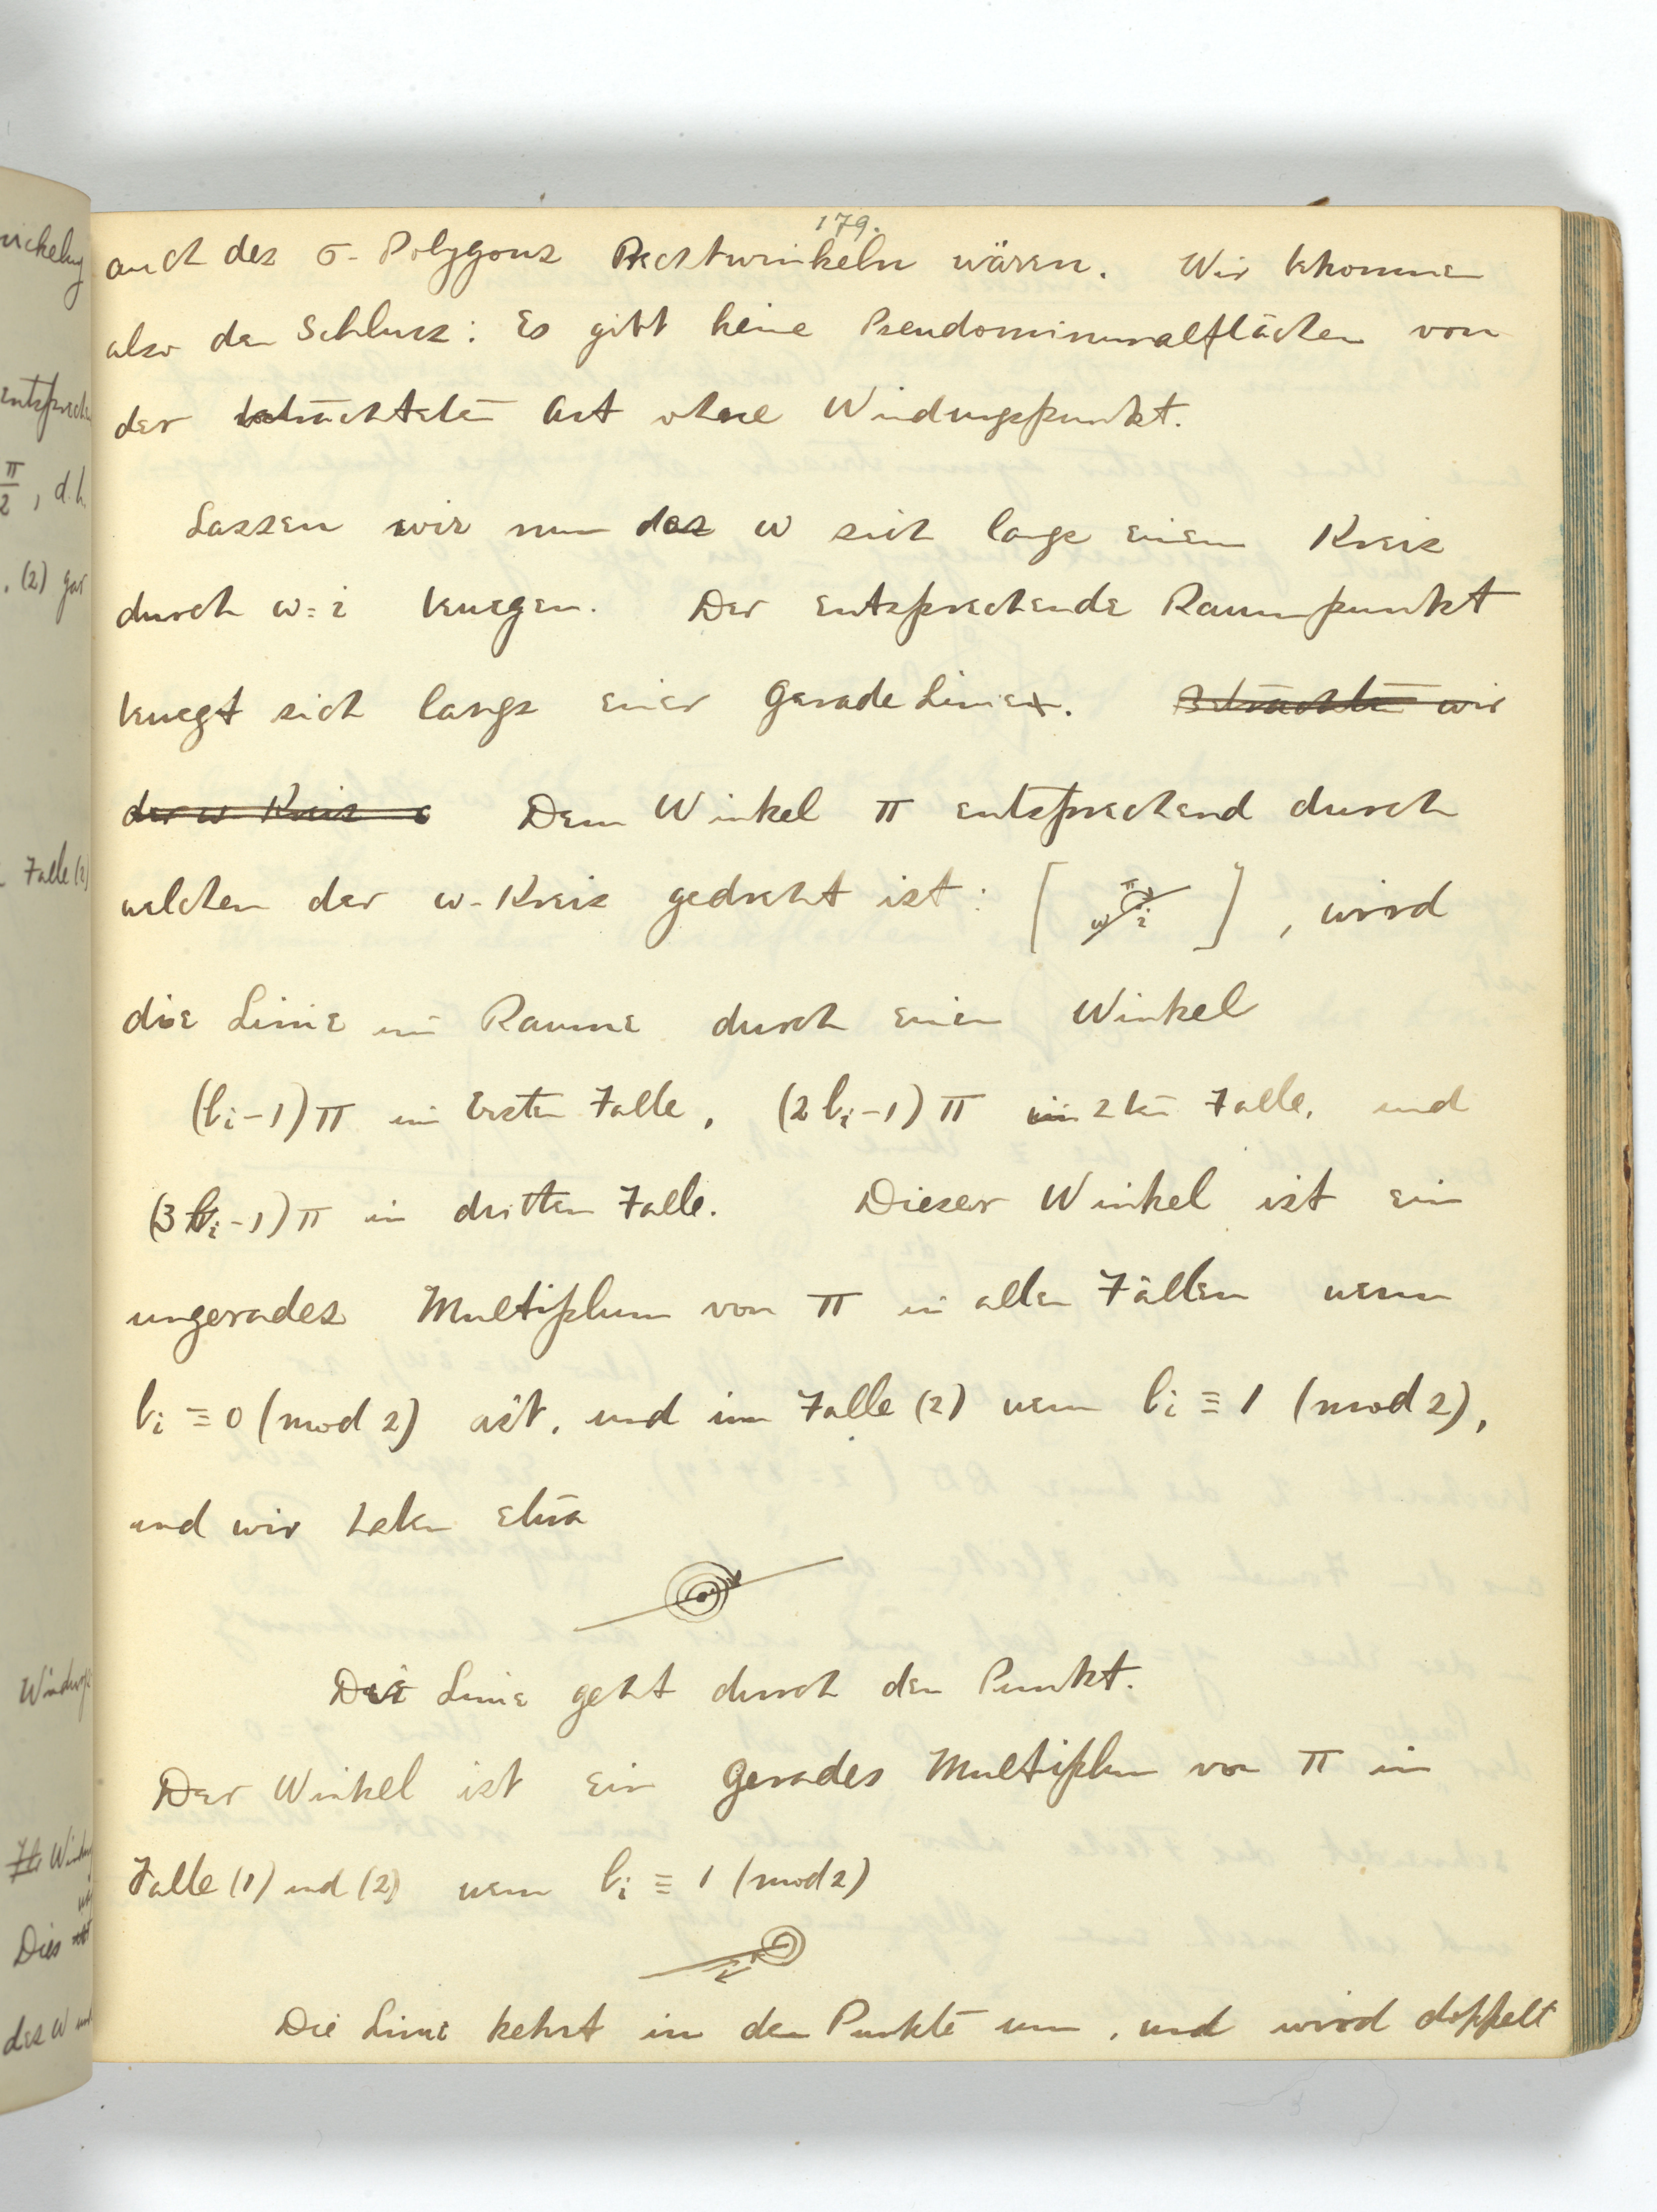 179.
auch des σ-Polygons Rechtwinkeln wären. Wir bekommen
also den Schluss: Es gibt keine Pseudominimalflächen von
der betrachteten Art ohne Windungspunkt.
Lassen wir nun das w sich langs einem Kreis
durch w=i bewegen. Der entsprechende Raumpunkt
bewegt sich langs einer gerade Linie. Betrachten wir
der w Kreis Dem Winkel π entsprechend durch
welchen der w-Kreis gedreht ist: [ π w i ], wird
die Linie im Raume durch einen Winkel
(bi-1)π im Ersten Falle, (2bi-1)π im 2ten Falle, und
(3bi-1)π in dritten Falle. Dieser Winkel ist ein
ungerades Multiplum von π in allen Fällen wenn
bi ≡ 0 (mod 2) ist, und im Falle (2) wenn bi ≡ 1 (mod 2),
und wir haben etwa
Die Linie geht durch den Punkt.
Der Winkel ist ein gerades Multiplum von π in
Falle (1) und (2) wenn bi ≡ 1 (mod 2)
Die Linie kehrt in den Punkte um, und wird doppelt
wickelung
entsprechen
π/2, d.h.
. (2) gar
Falle (2)
Dies
des W